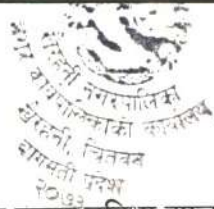 नगरपालिका
नगर कार्यपालिकाको कार्यालय
खैरहनी, चितवन
बागमती प्रदेश
२०७३